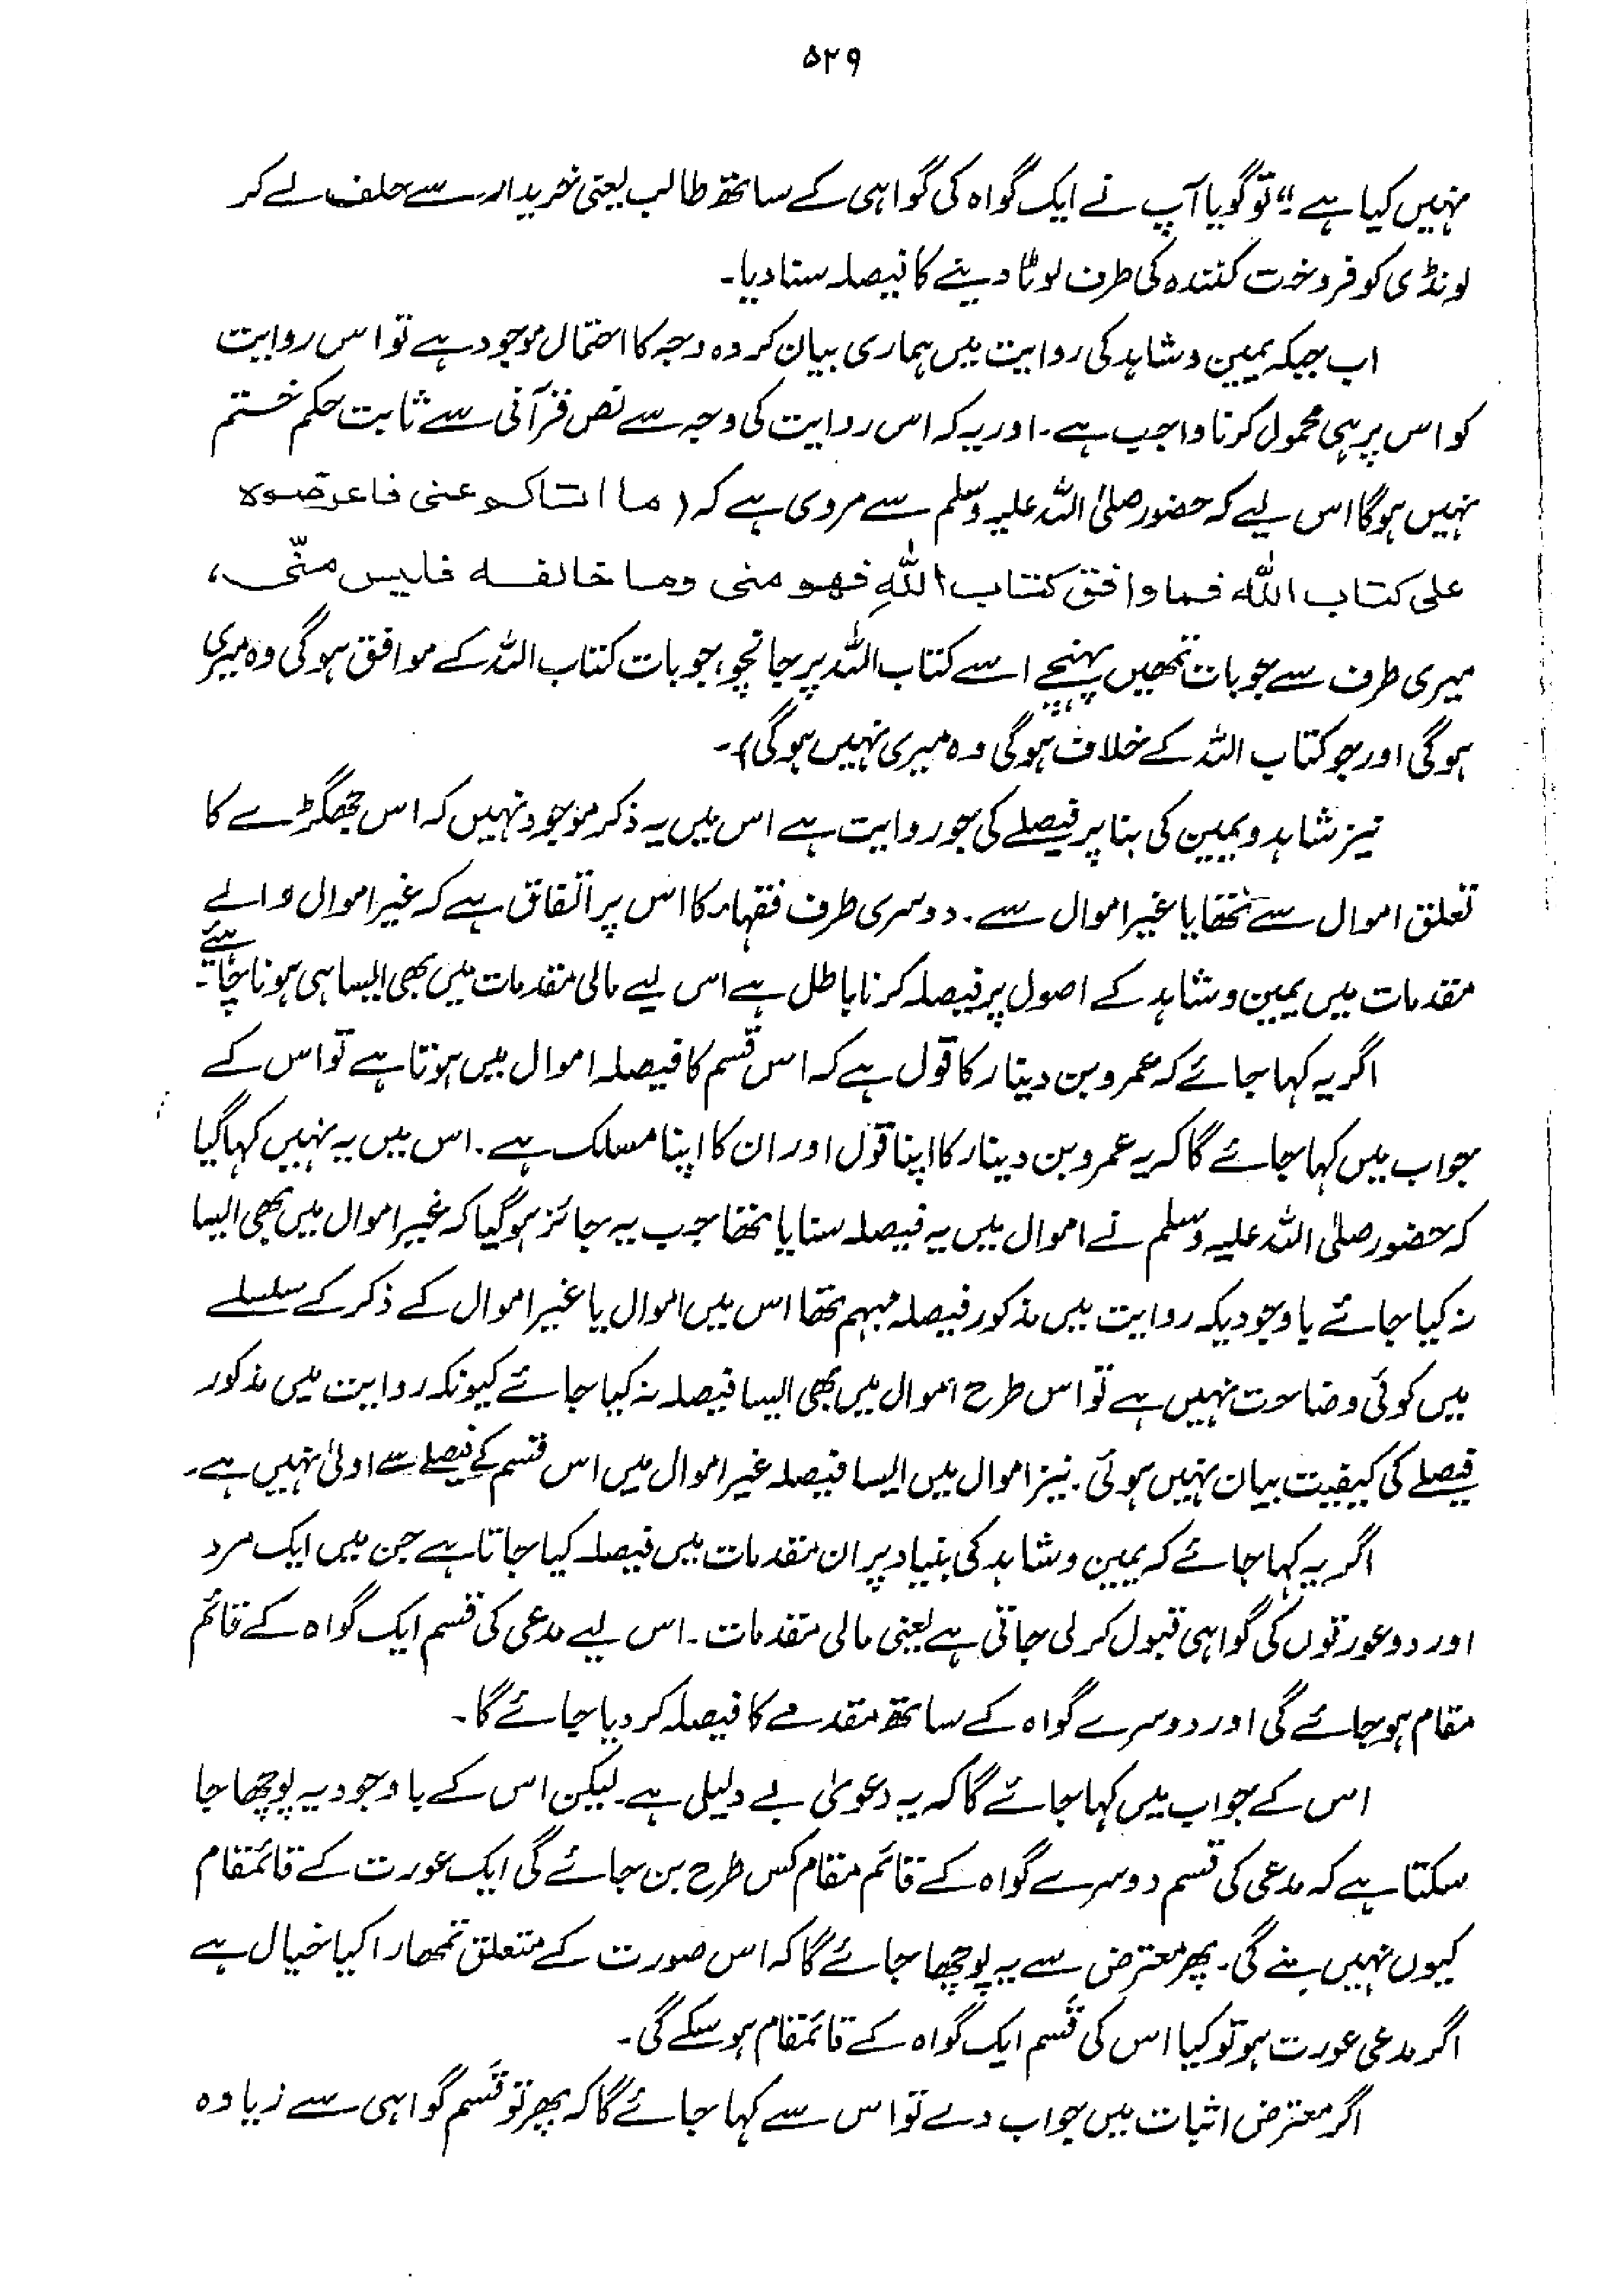 ۵۲۹
نہیں کیا ہے“ تو گویا آپ نے ایک گواہ کی گواہی کے ساتھ طالب یعنی خریدار سے حلف لے کر
لونڈی کو فروخت کنندہ کی طرف لوٹا دینے کا فیصلہ سنا دیا۔
اب جبکہ یمین وشاہد کی روایت میں ہماری بیان کردہ وجہ کا احتمال موجود ہے تو اس روایت
کو اس پر ہی محمول کرنا واجب ہے۔ اور یہ کہ اس روایت کی وجہ سے نص قرآنی سے ثابت حکم ختم
نہیں ہوگا اس لیے کہ حضور صلی اللہ علیہ وسلم سے مروی ہے کہ (ما اتاکم عنی فاعرضوہ
علی کتاب اللہ فما وافق کتاب اللہِ فھو منی وما خالفہ فلیس منّی،
میری طرف سے جو بات تمھیں پہنچے اسے کتاب اللہ پر جانچو، جو بات کتاب اللہ کے موافق ہوگی وہ میری
ہوگی اور جو کتاب اللہ کے خلاف ہوگی وہ میری نہیں ہوگی)۔
نیز شاہد ویمین کی بنا پر فیصلے کی جو روایت ہے اس میں یہ ذکر موجود نہیں کہ اس جھگڑے کا
تعلق اموال سے تھا یا غیر اموال سے۔ دوسری طرف فقہاء کا اس پر اتفاق ہے کہ غیر اموال والے
مقدمات میں یمین وشاہد کے اصول پر فیصلہ کرنا باطل ہے اس لیے مالی مقدمات میں بھی ایسا ہی ہونا چاہیئے۔
اگر یہ کہا جائے کہ عمرو بن دینار کا قول ہے کہ اس قسم کا فیصلہ اموال میں ہوتا ہے تو اس کے
جواب میں کہا جائے گا کہ یہ عمرو بن دینار کا اپنا قول اور ان کا اپنا مسلک ہے۔ اس میں یہ نہیں کہا گیا
کہ حضور صلی اللہ علیہ وسلم نے اموال میں یہ فیصلہ سنایا تھا جب یہ جائز ہو گیا کہ غیر اموال میں بھی ایسا
نہ کیا جائے باوجودیکہ روایت میں مذکور فیصلہ مبہم تھا اس میں اموال یا غیر اموال کے ذکر کے سلسلے
میں کوئی وضاحت نہیں ہے تو اس طرح اموال میں بھی ایسا فیصلہ نہ کیا جائے کیونکہ روایت میں مذکور
فیصلے کی کیفیت بیان نہیں ہوئی۔ نیز اموال میں ایسا فیصلہ غیر اموال میں اس قسم کے فیصلے سے اولیٰ نہیں ہے۔
اگر یہ کہا جائے کہ یمین وشاہد کی بنیاد پر ان مقدمات میں فیصلہ کیا جاتا ہے جن میں ایک مرد
اور دو عورتوں کی گواہی قبول کر لی جاتی ہے یعنی مالی مقدمات۔ اس لیے مدعی کی قسم ایک گواہ کے قائم
مقام ہو جائے گی اور دوسرے گواہ کے ساتھ مقدمے کا فیصلہ کر دیا جائے گا۔
اس کے جواب میں کہا جائے گا کہ یہ دعویٰ بے دلیلی ہے۔ لیکن اس کے باوجود یہ پوچھا جا
سکتا ہے کہ مدعی کی قسم دوسرے گواہ کے قائم مقام کس طرح بن جائے گی ایک عورت کے قائمقام
کیوں نہیں بنے گی۔ پھر معترض سے یہ پوچھا جائے گا کہ اس صورت کے متعلق تمھارا کیا خیال ہے
اگر مدعی عورت ہو تو کیا اس کی قَسم ایک گواہ کے قائمقام ہو سکے گی۔
اگر معترض اثبات میں جواب دے تو اس سے کہا جائے گا کہ پھر تو قَسم گواہی سے زیادہ